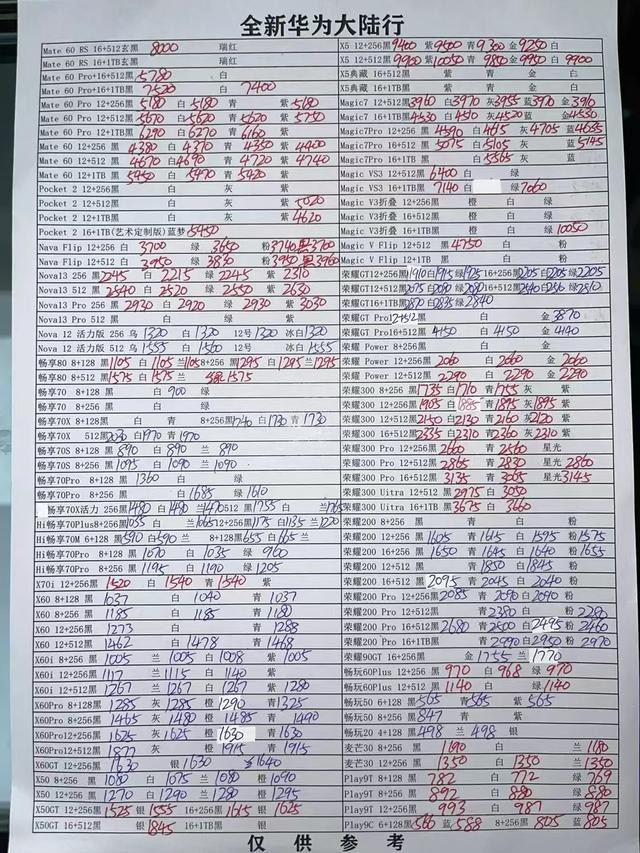 全新华为大陆行
Mate 60 RS 16+512玄黑 8000 瑞红
Mate 60 RS 16+1TB玄黑 瑞红
Mate 60 Pro+16+512黑 5780 白
Mate 60 Pro+16+1TB黑 7520 白 7400
Mate 60 Pro 12+256黑 5180 白 5180 青 紫 5180
Mate 60 Pro 12+512黑 5670 白 5620 青 5620 紫 5750
Mate 60 Pro 12+1TB黑 6290 白 6270 青 6160 紫
Mate 60 12+256 黑 4380 白 4370 青 4350 紫 4400
Mate 60 12+512 黑 4670 白 4690 青 4720 紫 4740
Mate 60 12+1TB 黑 5450 白 5470 青 5420 紫
Pocket 2 12+256黑 白 灰 紫
Pocket 2 12+512黑 白 灰 紫 5020
Pocket 2 12+1TB黑 白 灰 紫 4620
Pocket 2 16+1TB(艺术定制版)蓝梦 5450
Nava Flip 12+256 白 3700 绿 3650 粉 3740 黑 3700
Nava Flip 12+512 白 3950 绿 3830 粉 3950 黑 3960
Nova13 256 黑 2245 白 2215 绿 2245 紫 2310
Nova13 512 黑 2540 白 2520 绿 2550 紫 2630
Nova13 Pro 256 黑 2930 白 2920 绿 2930 紫 3030
Nova13 Pro 512 黑 白 绿 紫
Nova 12 活力版 256 乌 1320 白 1320 12号 1320 冰白 1320
Nova 12 活力版 512 乌 1555 白 1560 12号 冰白 1555
畅享80 8+128 黑 1105 白 1105 兰 1105 8+256黑 1295 白 1295 兰 1295
畅享80 8+512 黑 1575 白 1575 兰 1575
畅享70 8+128 黑 白 900 绿
畅享70 8+256 黑 白 绿
畅享70X 8+128黑 白 青 8+256黑 1740 白 1730 青 1730
畅享70X 512黑 2030 白 1970 青 1970
畅享70S 8+128 黑 890 白 890 兰 890
畅享70S 8+256 黑 1095 白 1090 兰 1090
畅享70Pro 8+128 黑 1360 白 绿
畅享70Pro 8+256 黑 白 1685 绿 1610
畅享70X活力 256黑 1480 白 1480 兰 1470 512 黑 1755 白 兰 1765
Hi畅享70Plus8+256黑 1055 白 兰 1065 12+256黑 1175 白 1135 兰 1220
Hi畅享70M 6+128 黑 590 白 590 兰 8+128黑 655 白 655 兰
Hi畅享70Pro 8+128 黑 1070 白 1035 绿 960
Hi畅享70Pro 8+256 黑 1195 白 1190 绿 1205
X70i 12+256黑 1520 白 1540 青 1540 紫
X60 8+128 黑 1037 白 1040 青 1037
X60 8+256 黑 1185 白 1185 青 1180
X60 12+256黑 1273 白 青 1288
X60 12+512黑 1462 白 1478 青 1468
X60i 8+256 黑 1005 兰 1005 白 1008 紫 1005
X60i 12+256黑 1117 兰 1115 白 1140 紫
X60i 12+512黑 1267 兰 1267 白 1267 紫 1280
X60Pro 8+128黑 1285 灰 1285 橙 1290 青 1325
X60Pro 8+256黑 1465 灰 1480 橙 1485 青 1490
X60Pro12+256黑 1625 灰 1625 橙 1630 青 1630
X60Pro12+512黑 1877 灰 橙 1915 青 1915
X60GT 12+256黑 1630 银 1630 1640
X50 8+256 黑 1080 白 1075 兰 1080 橙 1090
X50 12+256黑 1270 白 1290 兰 1280 橙 1295
X50GT 12+256黑 1525 银 1555 16+256黑 1615 银 1625
X50GT 16+512黑 1845 16+1TB黑 银
X5 12+256黑 9400 紫 9500 青 9300 金 9250 白
X5 12+512黑 9900 紫 10050 青 9850 金 9950 白 9900
X5典藏 16+512黑 紫 青 金 白
X5典藏 16+1TB黑 紫 青 金 白
Magic7 12+512黑 3960 白 3970 灰 3955 蓝 3970 金 3910
Magic7 16+1TB黑 4530 白 4510 灰 4520 蓝 金 4530
Magic7Pro 12+256 黑 4590 白 4615 灰 4705 蓝 4635
Magic7Pro 16+512黑 5075 白 5105 灰 蓝 5145
Magic7Pro 16+1TB黑 白 5365 灰 蓝
Magic VS3 12+512黑 6400 白 绿
Magic VS3 16+1TB黑 7140 绿 7060
Magic V3折叠 12+256黑 橙 白 绿
Magic V3折叠 16+512黑 橙 白 绿
Magic V3折叠 16+1TB黑 橙 白 绿 10050
Magic V Flip 12+512黑 4750 白 粉
Magic V Flip 12+1TB黑 白 粉
荣耀GT12+256黑 1910 白 1915 绿 1925 16+256黑 2205 白 2205 绿 2205
荣耀GT12+512黑 2075 白 2090 绿 2080 16+512黑 2540 白 256 绿 2810
荣耀GT16+1TB黑 2870 白 2835 绿 2840
荣耀GT Pro12+512黑 白 金 3870
荣耀GT Pro16+512黑 4150 白 4150 金 4140
荣耀 Power 8+256黑 白 金
荣耀 Power 12+256黑 2060 白 2060 金 2060
荣耀 Power 12+512黑 2290 白 2290 金 2290
荣耀300 8+256 黑 1735 白 1710 青 1755 灰 紫
荣耀300 12+256黑 1905 白 1885 青 1895 灰 1895 紫
荣耀300 12+512黑 2150 白 2130 青 2160 灰 2120 紫
荣耀300 16+512黑 2335 白 2310 青 2360 灰 2310 紫
荣耀300 Pro 12+256黑 2600 青 2560 星光
荣耀300 Pro 12+512黑 2865 青 2830 星光 2860
荣耀300 Pro 16+512黑 3135 青 3065 星光 3145
荣耀300 Uitra 12+512黑 2975 白 3050
荣耀300 Uitra 16+1TB黑 3675 白 3660
荣耀200 8+256 黑 青 白 粉
荣耀200 12+256 黑 1605 青 1615 白 1595 粉 1575
荣耀200 16+256 黑 1650 青 1645 白 1640 粉 1655
荣耀200 12+512 黑 青 1850 白 1845 粉
荣耀200 16+512 黑 2095 青 2045 白 2040 粉
荣耀200 Pro 12+256黑 2085 青 2090 白 2090 粉
荣耀200 Pro 12+512黑 青 2380 白 粉 2290
荣耀200 Pro 16+512黑 2680 青 2500 白 2495 粉 2460
荣耀200 Pro 16+1TB黑 青 2990 白 2950 粉 2970
荣耀90GT 16+256黑 金 1755 兰 1770
畅玩60Plus 12+256黑 970 白 968 绿 970
畅玩60Plus 12+512黑 1140 白 绿 1140
畅玩50 6+128 黑 565 青 565 紫 565
畅玩50 8+256 黑 847 青 紫
畅玩20 4+128 黑 498 兰 498 银
麦芒30 8+256 黑 1190 白 兰 1180
麦芒30 12+256 黑 1350 白 1350 兰 1350
Play9T 8+128 黑 782 白 772 绿 769
Play9T 8+256 黑 892 白 880 绿 880
Play9T 12+256黑 993 白 987 绿 987
Play9C 6+128黑 560 蓝 588 8+256黑 805 蓝 805
仅供参考